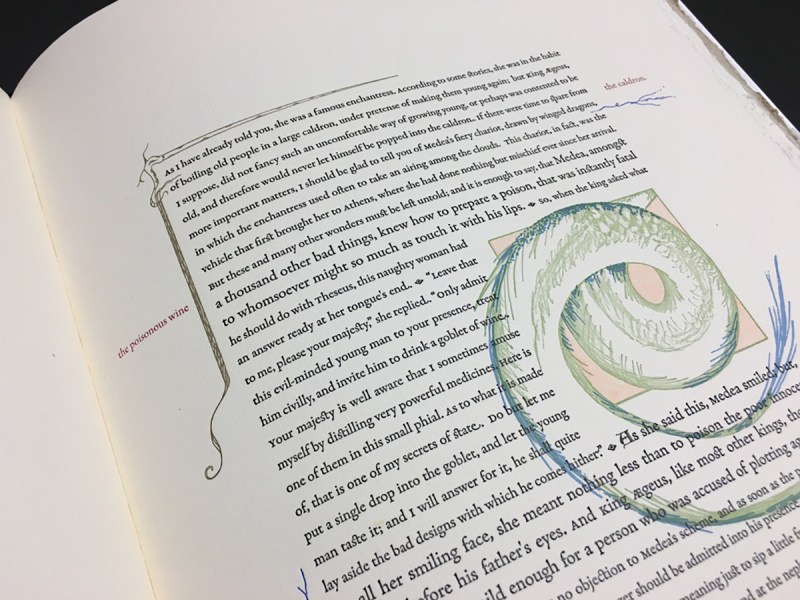 As I have already told you, she was a famous enchantress. According to some stories, she was in the habit
of boiling old people in a large caldron, under pretense of making them young again; but King Ægeus,
I suppose, did not fancy such an uncomfortable way of growing young, or perhaps was contented to be
old, and therefore would never let himself be popped into the caldron. If there were time to spare from
more important matters, I should be glad to tell you of Medea's fiery chariot, drawn by winged dragons,
in which the enchantress used often to take an airing among the clouds. This chariot, in fact, was the
vehicle that first brought her to Athens, where she had done nothing but mischief ever since her arrival.
But these and many other wonders must be left untold; and it is enough to say, that Medea, amongst
a thousand other bad things, knew how to prepare a poison, that was instantly fatal
to whomsoever might so much as touch it with his lips. So, when the king asked what
he should do with Theseus, this naughty woman had
an answer ready at her tongue's end. "Leave that
to me, please your majesty," she replied. "Only admit
this evil-minded young man to your presence, treat
him civilly, and invite him to drink a goblet of wine.
Your majesty is well aware that I sometimes amuse
myself by distilling very powerful medicines. Here is
one of them in this small phial. As to what it is made
of, that is one of my secrets of state. Do but let me
put a single drop into the goblet, and let the young
man taste it; and I will answer for it, he shall quite
lay aside the bad designs with which he comes hither." As she said this, Medea smiled; but,
all her smiling face, she meant nothing less than to poison the poor innoce
before his father's eyes. And King Ægeus, like most other kings, tho
ild enough for a person who was accused of plotting ag
no objection to Medea's scheme, and as soon as the p
ger should be admitted into his presence
meaning just to sip a little f
d at the nept
the caldron.
the poisonous wine